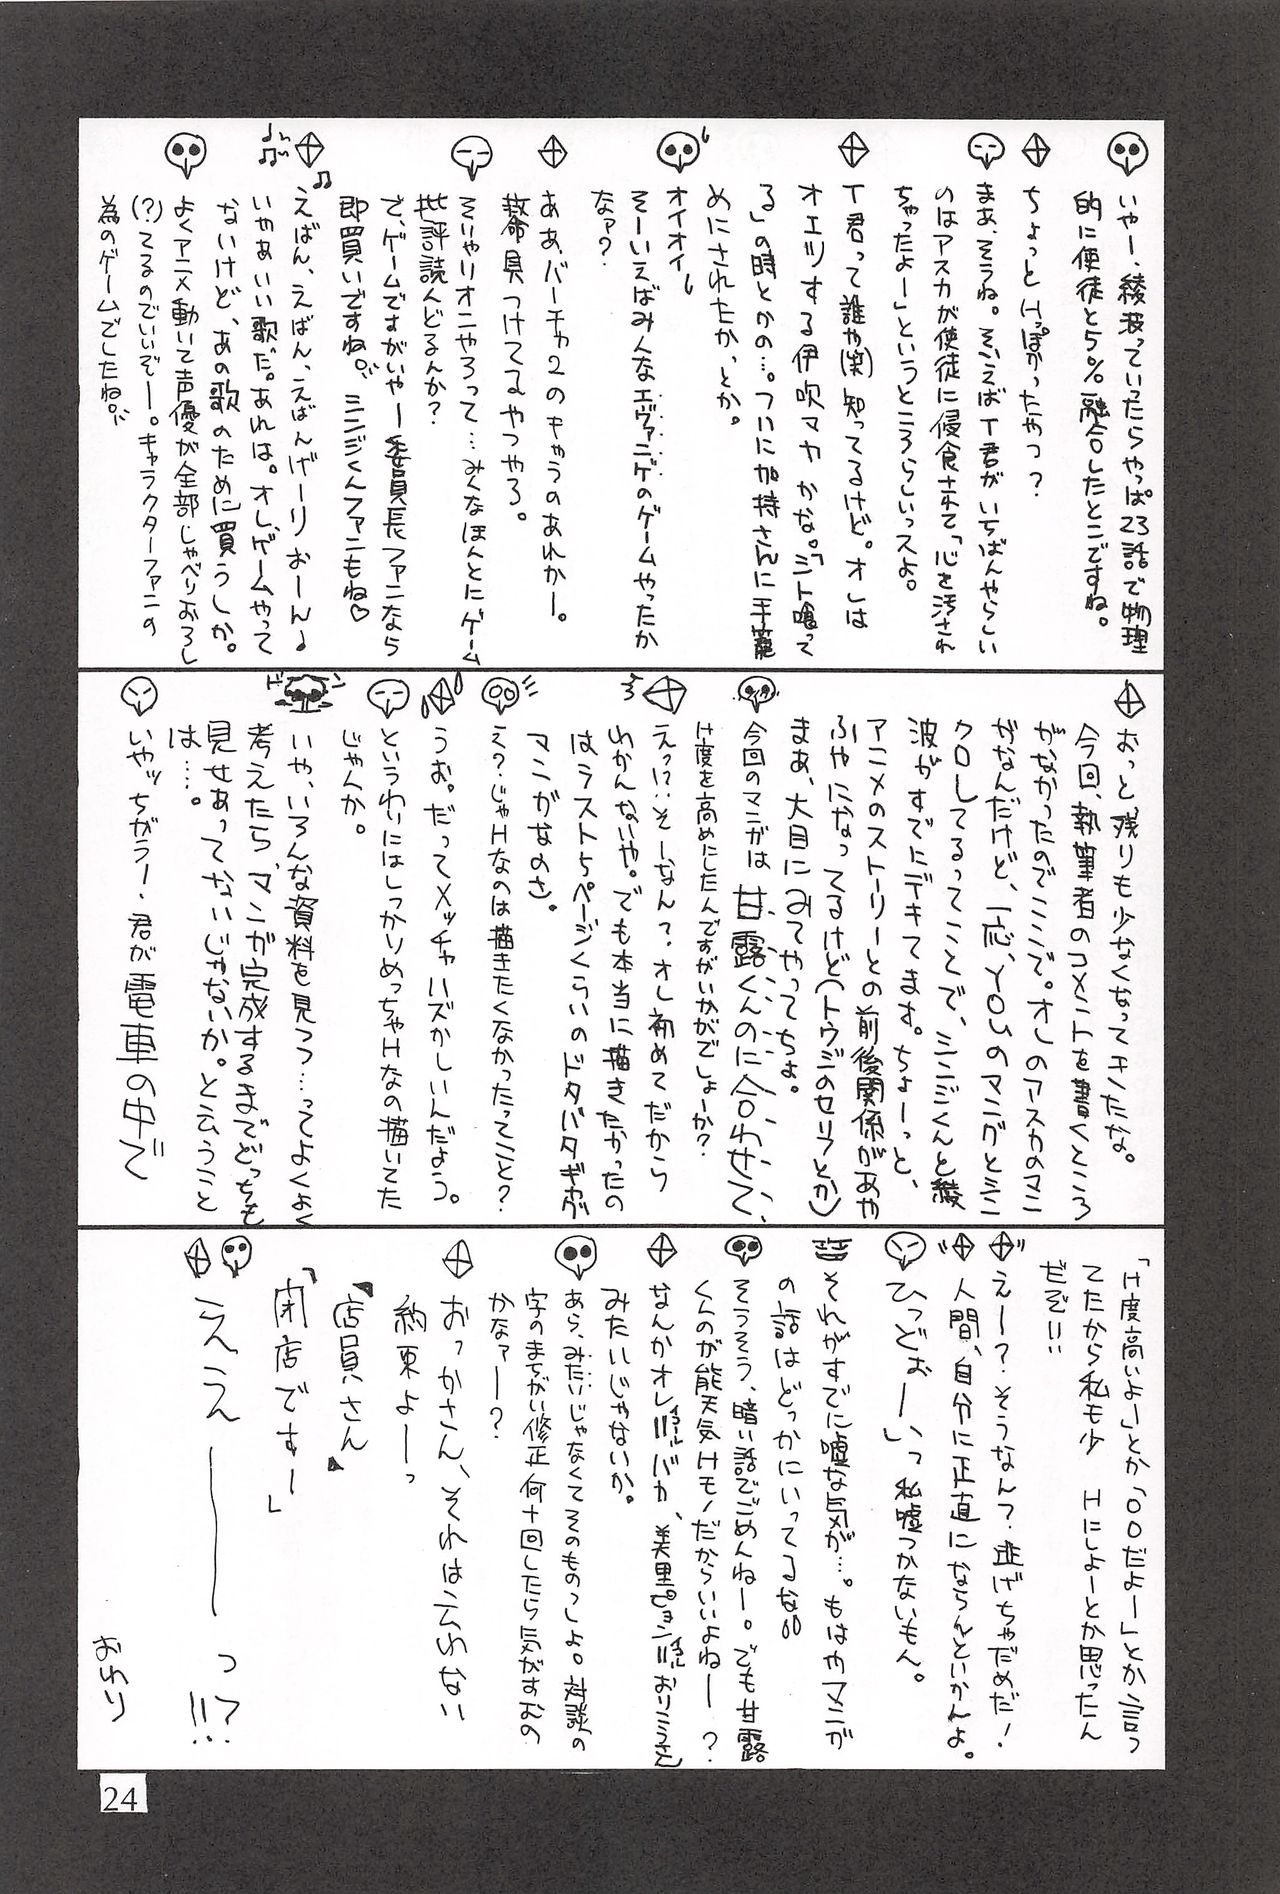 いやー、綾波っていったらやっぱ23話で物理
的に使徒と5%融合したとこですね。
ちょっとHっぽかったやつ？
まぁ、そうね。そいえばT君がいちばんやらしい
のはアスカが使徒に侵食されて「心を汚され
ちゃったよー」というところらしいっスよ。
T君って誰や(笑)知ってるけど。オレは
オエツする伊吹マヤかな。「シト喰って
る」の時とかの…。ついに加持さんに手籠
めにされたかっとか。
オイオイ
そーいえばみんなエヴァンゲのゲームやったか
なァ？
ああ、バーチャ2のキャラのあれかー。
救命具つけてるやつやろ。
そりゃリオンやろって…みんなほんとにゲーム
批評読んどるんか？
で、ゲームですがいやー委員長ファンなら
即買いですね。シンジくんファンもね♡
えばん、えばん、えばんげーりおーん♩
いやぁいい歌だ。あれは。オレ、ゲームやって
ないけど、あの歌のために買うしか。
よくアニメ動いて声優が全部しゃべりおろし
(?)てるのでいいぞー。キャラクターファンの
為のゲームでしたね。
おっと残りも少なくなってキたな。
今回、執筆者のコメントを書くところ
がなかったのでここで。オレのアスカのマン
ガなんだけど、一応、YOUのマンガとシン
クロしてるってことで、シンジくんと綾
波がすでにデキてます。ちょーっと、
アニメのストーリーとの前後関係があや
ふやになってるけど(トウジのセリフとか)
まぁ、大目にみてやってちょ。
今回のマンガは甘露くんのに合わせて、
H度を高めにしたんですがいかがでしょーか？
えっ!?そーなん？オレ初めてだから
わかんないや。でも本当に描きたかったの
はラスト5ページくらいのドタバタギャグ
マンガなのさ。
え？じゃHなのは描きたくなかったってこと？
うお。だってメッチャハズかしいんだよう。
というわりにはしっかりめっちゃHなの描いてた
じゃんか。
いや、いろんな資料を見つつ…ってよくよく
考えたら、マンガ完成するまでどっちも
見せあってないじゃないか。と云うこと
は…。
いやッちがうー、君が電車の中で
「H度高いよー」とか「〇〇だよー」とか言っ
てたから私も少　Hにしよーとか思ったん
だぞ!!
えー？そうなん？逃げちゃだめだ！
人間、自分に正直にならんといかんよ。
ひっどぉーいっ私嘘つかないもん。
それがすでに嘘な気が…。もはやマンガ
の話はどっかにいってるな
そうそう、暗い話でごめんねー。でも甘露
くんのが能天気Hモノだからいいよねー？
なんかオレ=バカ、美里ピョン=おりこうさん
イコール
イコール
みたいじゃないか。
あら、みたいじゃなくてそのものっしょ。対談の
字のまちがい修正何十回したら気がすむの
かなァー？
おっかさん、それは云わない
約束よーっ
店員さん
「閉店ですー」
ええーーーっ!!?…
おわり
24